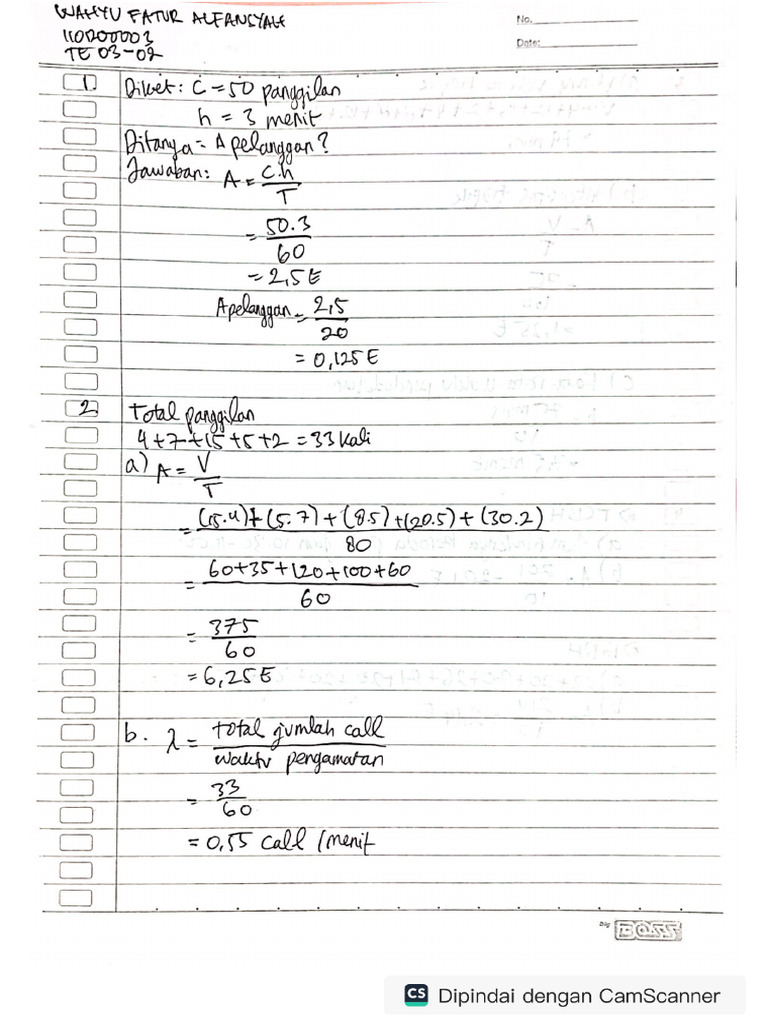 WAHYU FATUR ALFANSYAH
110200003
TE 03-02
No.
Date:
1 Diket: C = 50 panggilan
h = 3 menit
Ditanya = A pelanggan?
Jawaban: A = C.h / T
= 50.3 / 60
= 2,5 E
A pelanggan = 2,5 / 20
= 0,125 E
2 Total panggilan
4+7+15+5+2 = 33 kali
a) A = V / T
= (15.4)+(5.7)+(8.5)+(20.5)+(30.2) / 80
= 60+35+120+100+60 / 60
= 375 / 60
= 6,25 E
b. λ = total jumlah call / waktu pengamatan
= 33 / 60
= 0,55 call / menit
BOSS
CS Dipindai dengan CamScanner